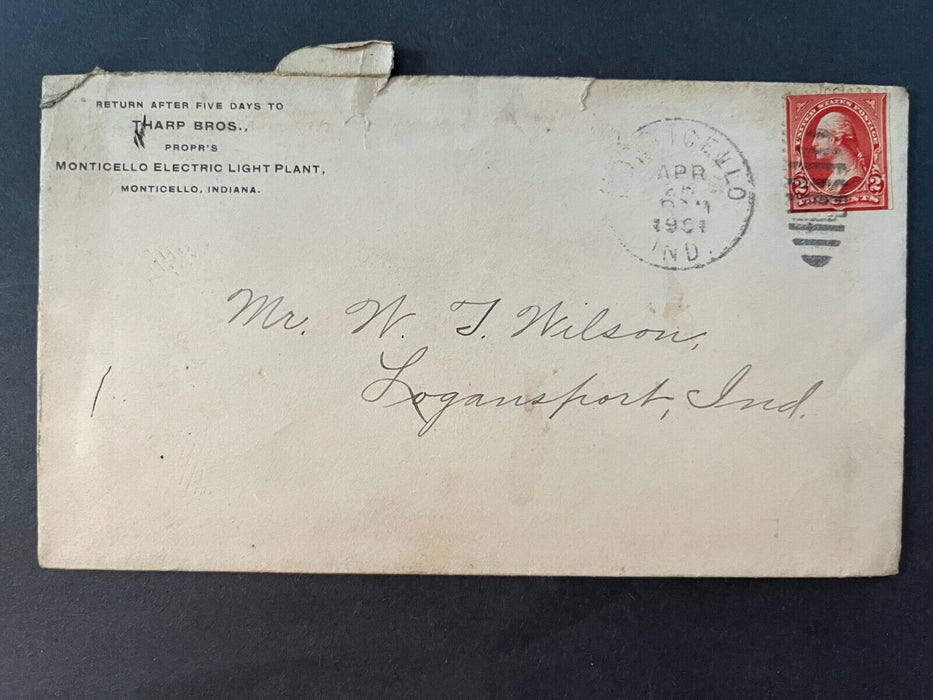 RETURN AFTER FIVE DAYS TO
THARP BROS.,
PROPR'S
MONTICELLO ELECTRIC LIGHT PLANT,
MONTICELLO, INDIANA.
MONTICELLO
APR
1901
IND.
UNITED STATES POSTAGE
2 2
TWO CENTS
Mr. W. T. Wilson,
Logansport, Ind.